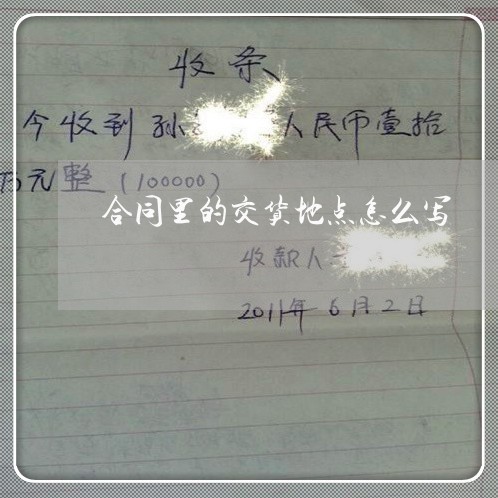 收条
今收到孙 人民币壹拾
万元整(100000)
合同里的交货地点怎么写
收款人
2011年6月2日